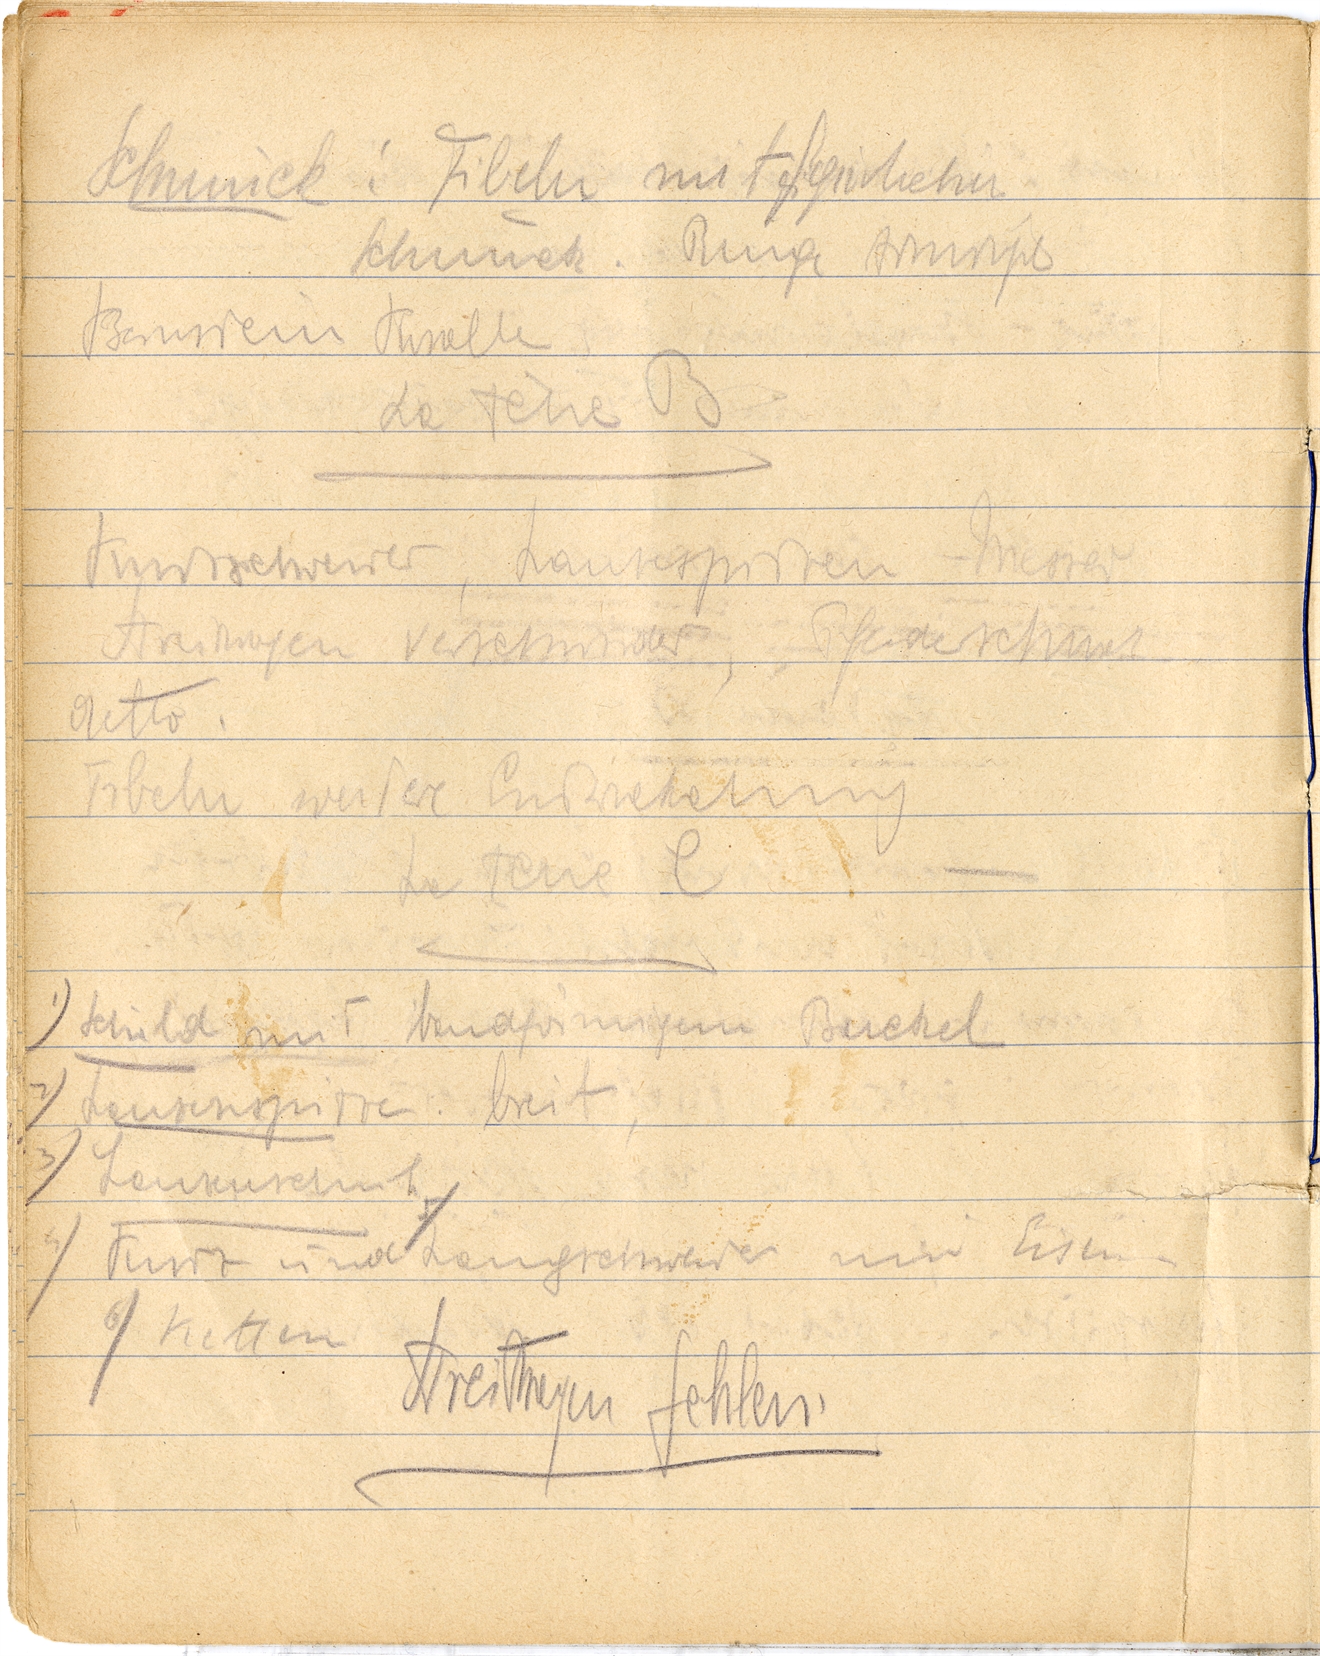 Schmuck: Fibeln mit figürlichem
Schmuck. Ringe
Bernstein Koralle
La Tène B
Kurzschwerter, Lanzespitzen - Messer
Streitwagen verschwindet, Pferdeschmuck
detto.
Fibeln weitere Entwickelung
La Tène C
1) Schild mit bandförmigem Buckel
2) Lanzenspitze. breit,
3) Lanzenschuh
4) Kurz und 5) Langschwerter mit Eisen-
6) Ketten
Streitwagen fehlen.